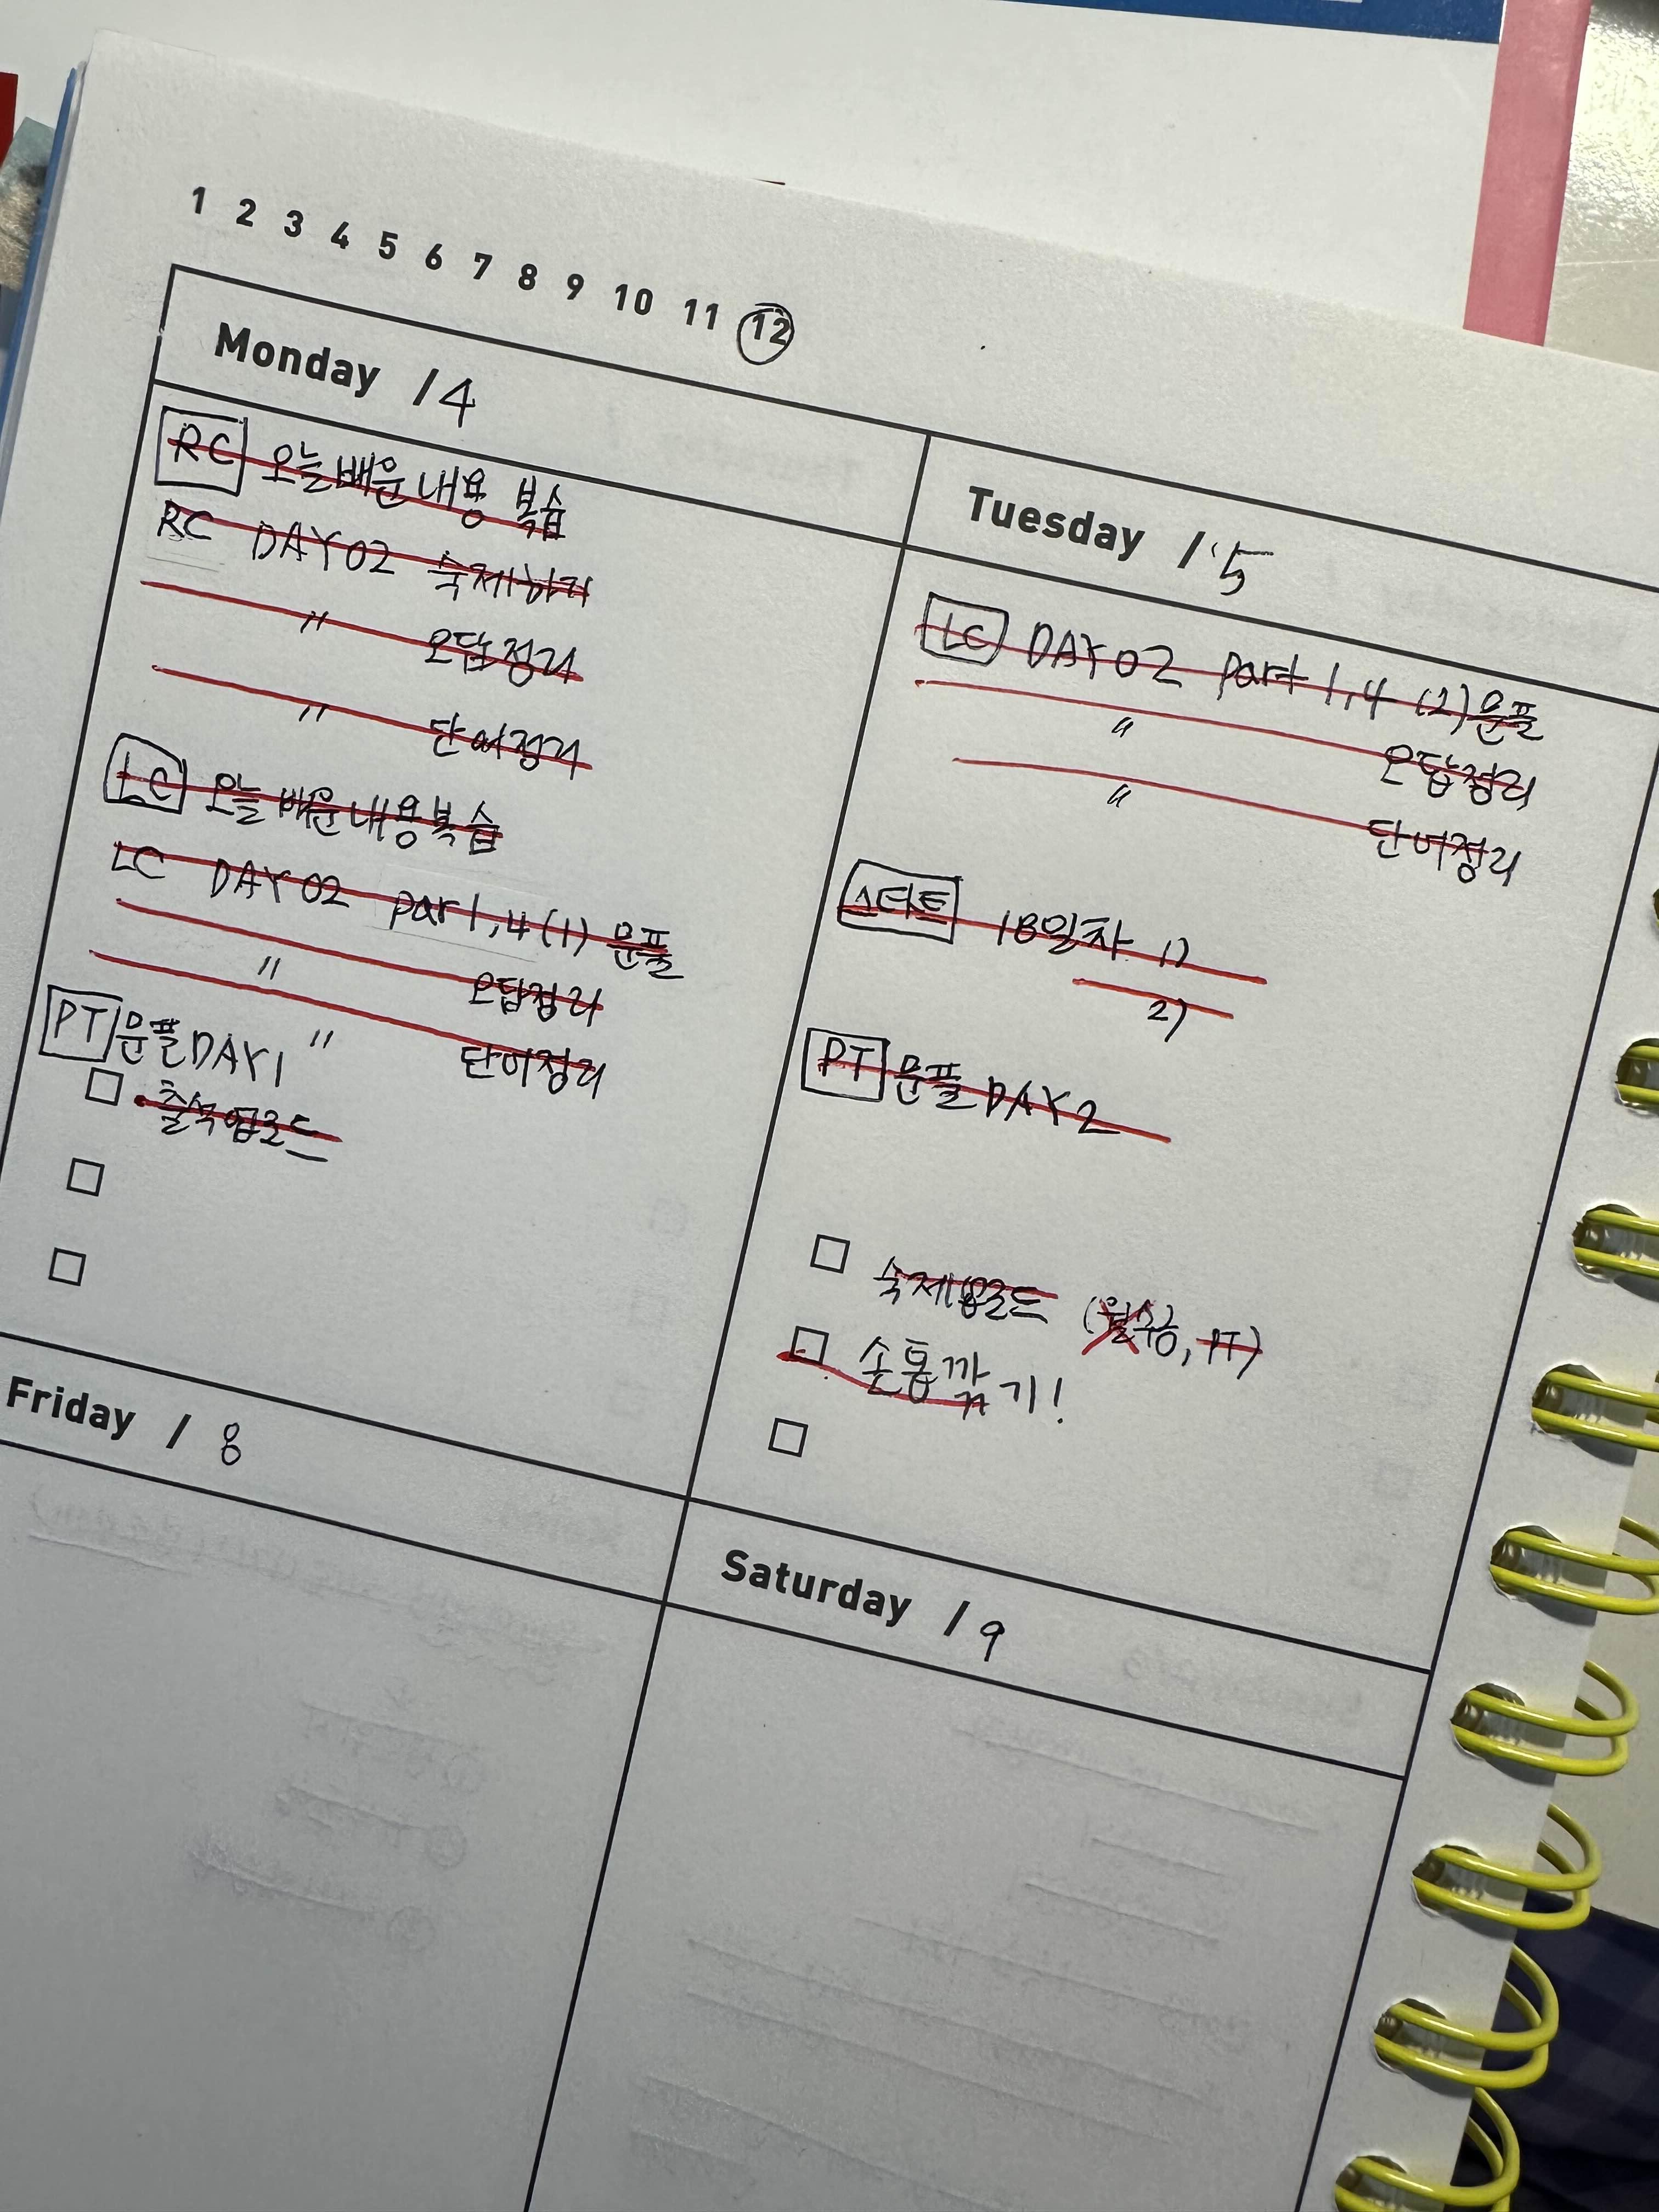 1 2 3 4 5 6 7 8 9 10 11 12
Monday / 4
RC 오늘 배운 내용 복습
RC DAY 02 숙제하기
" 오답정리
" 단어정리
LC 오늘 배운 내용 복습
LC DAY 02 par 1, 4 (1) 문풀
" 오답정리
" 단어정리
PT 문풀 DAY 1
출석 업로드
Tuesday / 5
LC DAY 02 part 1, 4 (2) 문풀
" 오답정리
" 단어정리
스타트 18일차 1)
2)
PT 문풀 DAY 2
숙제 업로드 ( , PT)
손톱깎기!
Friday / 8
Saturday / 9